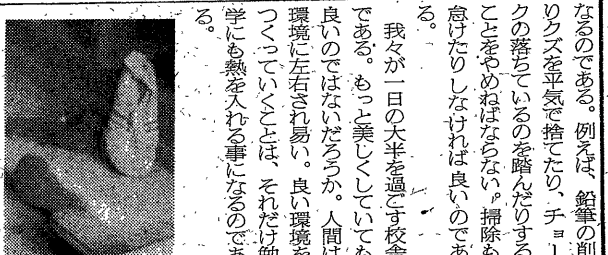 なるのである。例えば、鉛筆の削
りクズを平気で捨てたり、チョー
クの落ちているのを踏んだりする
ことをやめねばならない。掃除も
怠けたりしなければ良いのであ
る。
我々が一日の大半を過ごす校舎
である。もっと美しくしていても
良いのではないだろうか。人間は
環境に左右され易い。良い環境を
つくっていくことは、それだけ勉
学にも熱を入れる事になるのであ
る。